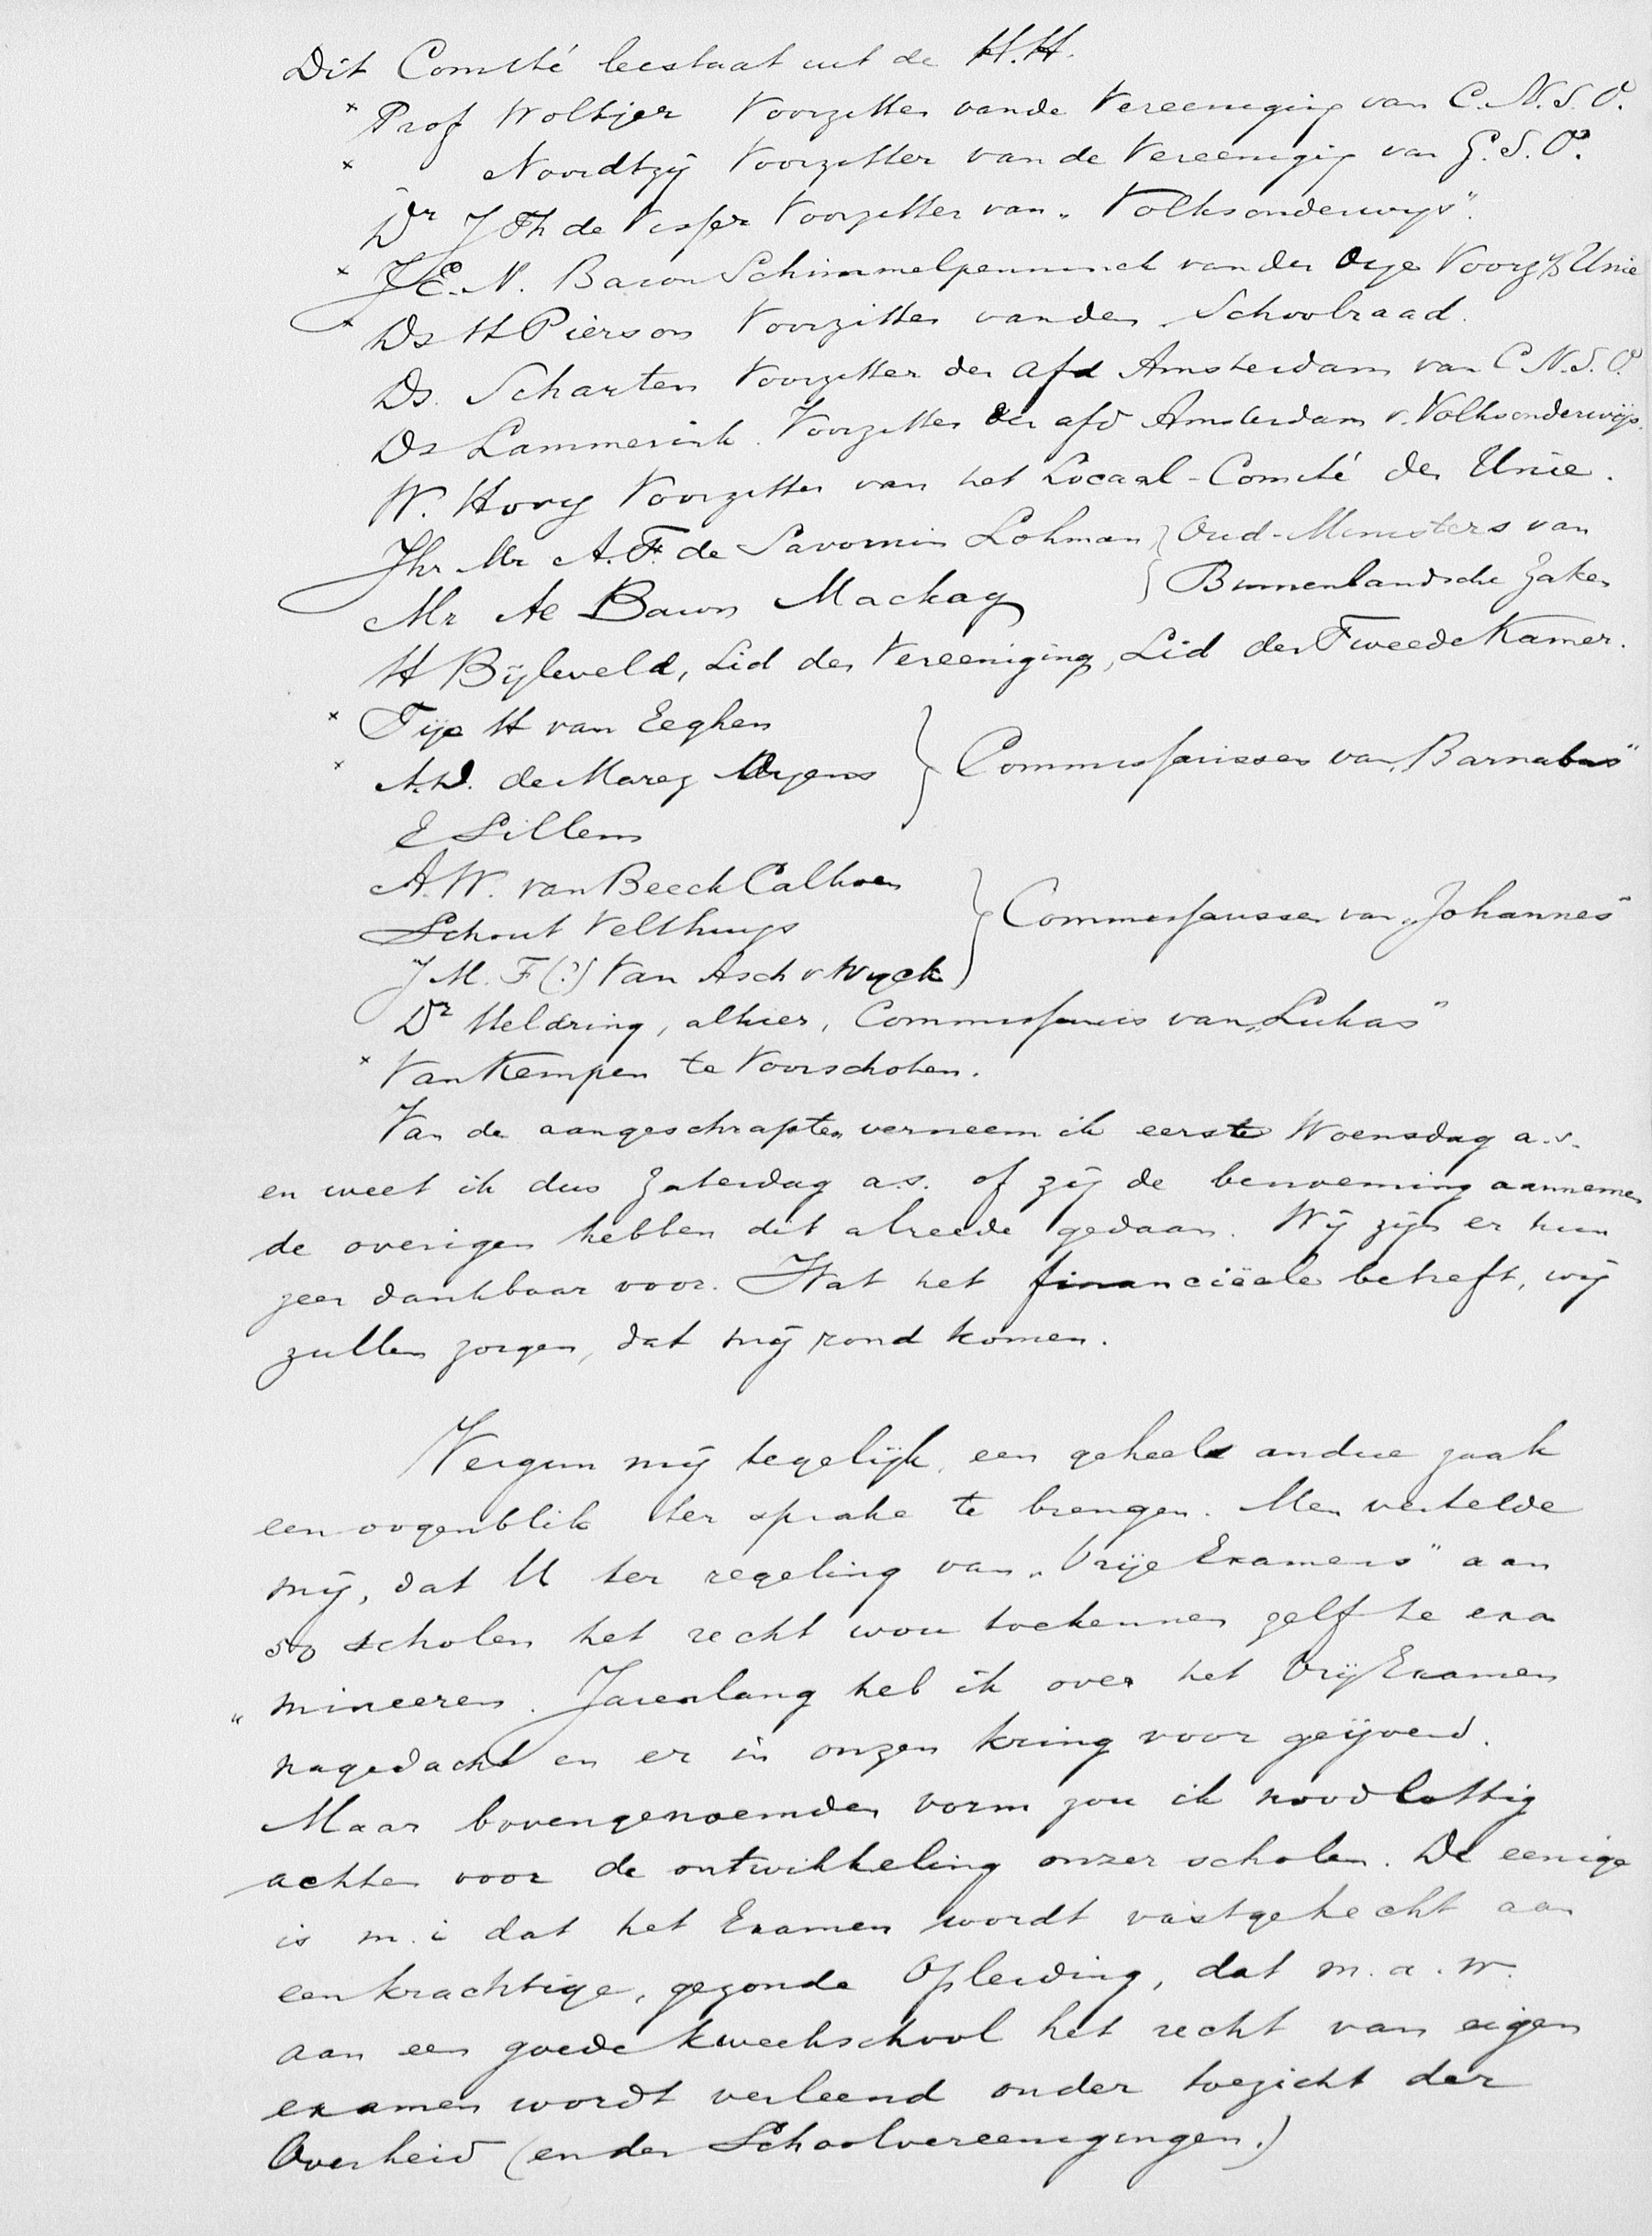 Dit Comité bestaat uit de H.H.
× Prof Woltjer Voorzitter van de Vereeniging van C.N.S.O.
× Noordtzij Voorzitter van de Vereeniging van G.S.O.
Dr J Th de Visser Voorzitter van „Volksonderwijs".
× J.E.N. Baron Schimmelpenninck van der Oye Voorz. Unie
× Ds H Pierson Voorzitter van den Schoolraad.
Ds. Scharten Voorzitter der afd Amsterdam van C.N.S.O.
Ds Lammerink. Voorzitter der afd Amsterdam v. Volksonderwijs.
W. Hovy Voorzitter van het Locaal-Comité der Unie.
Jhr Mr A.F. de Savornin Lohman } Oud-Ministers van
Mr Ae Baron Mackay } Binnenlandsche Zaken
H Bijleveld, Lid der Vereeniging, Lid der Tweede Kamer.
× Tije H van Eeghen
× A.D. de Marez Oyens } Commissarissen van „Barnabas"
E Sillem
A.W. van Beeck Calkoen
Schout Velthuys } Commissarissen van „Johannes"
J M. F (?) Van Asch v Wyck
Dr Heldring, alhier, Commissaris van „Lukas"
× Van Kempen te Voorschoten.
Van de aangeschrapten verneem ik eerst Woensdag a.s.
en weet ik dus Zaterdag a.s. of zij de benoeming aannemen
de overigen hebben dit alreede gedaan. Wij zijn er hun
zeer dankbaar voor. Wat het financiëele betreft, wij
zullen zorgen, dat wij rond komen.
Vergun mij tegelijk een geheel andere zaak
een oogenblik ter sprake te brengen. Men vertelde
mij, dat U ter regeling van „Vrije Examens" aan
50 scholen het recht wou toekennen zelf te exa
„mineeren. Jarenlang heb ik over het Vrij Examen
nagedacht en er in onzen kring voor geijverd.
Maar bovengenoemden vorm zou ik noodlottig
achten voor de ontwikkeling onzer scholen. De eenige
is m.i dat het Examen wordt vastgehecht aan
een krachtige, gezonde Opleiding, dat m.a.w.
aan een goede kweekschool het recht van eigen
examen wordt verleend onder toezicht der
Overheid (en der Schoolvereenigingen.)